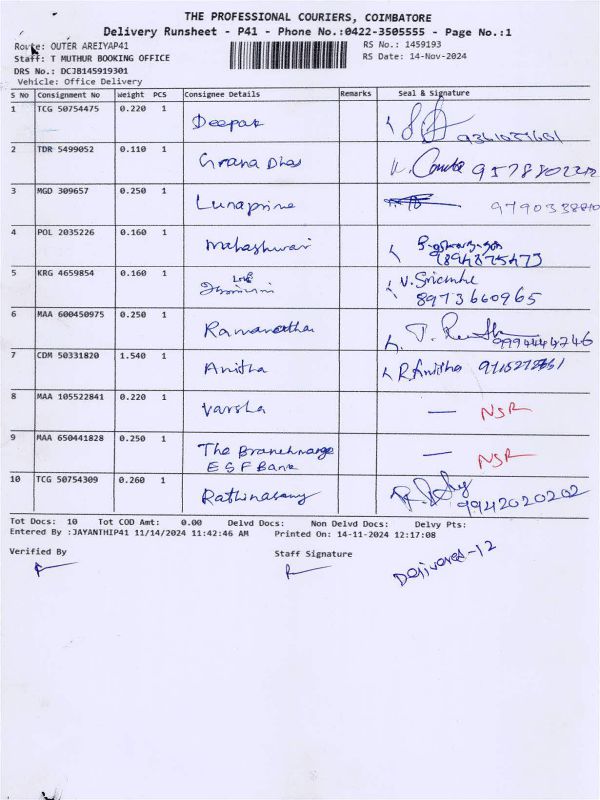 THE PROFESSIONAL COURIERS, COIMBATORE
Delivery Runsheet - P41 - Phone No.:0422-3505555 - Page No.:1
Route: OUTER AREIYAP41 RS No.: 1459193
Staff: T MUTHUR BOOKING OFFICE RS Date: 14-Nov-2024
DRS No.: DCJB145919301
Vehicle: Office Delivery
S No Consignment No Weight PCS Consignee Details Remarks Seal & Signature
1 TCG 50754475 0.220 1 Deepak
2 TDR 5499052 0.110 1
3 MGD 309657 0.250 1 Lunaprime
4 POL 2035226 0.160 1 Mahashwari
5 KRG 4659854 0.160 1 V.
8973660965
6 MAA 600450975 0.250 1 9994444246
7 CDM 50331820 1.540 1 Anitha R. Anitha
8 MAA 105522841 0.220 1 Varsha — NSR
9 MAA 650441828 0.250 1 The Branch — NSR
ESF Bank
10 TCG 50754309 0.260 1 Rathinasamy 9942020202
Tot Docs: 10 Tot COD Amt: 0.00 Delvd Docs: Non Delvd Docs: Delvy Pts:
Entered By :JAYANTHIP41 11/14/2024 11:42:46 AM Printed On: 14-11-2024 12:17:08
Verified By Staff Signature
Delivered-12